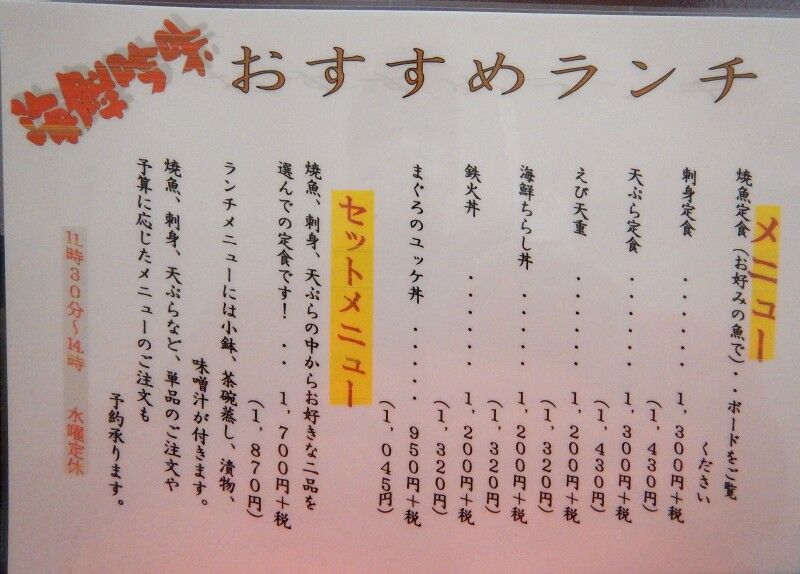 おすすめランチ
メニュー
焼魚定食(お好みの魚で)・・ボードをご覧
ください
刺身定食 ・・・・・・1,300円+税
(1,430円)
天ぷら定食 ・・・・・1,300円+税
(1,430円)
えび天重 ・・・・・・1,200円+税
(1,320円)
海鮮ちらし丼 ・・・・1,200円+税
(1,320円)
鉄火丼 ・・・・・・・1,200円+税
(1,320円)
まぐろのユッケ丼 ・・・・・950円+税
(1,045円)
セットメニュー
焼魚、刺身、天ぷらの中からお好きな二品を
選んでの定食です! ・・1,700円+税
(1,870円)
ランチメニューには小鉢、茶碗蒸し、漬物、
味噌汁が付きます。
焼魚、刺身、天ぷらなど、単品のご注文や
予算に応じたメニューのご注文も
予約承ります。
11時30分~14時 水曜定休